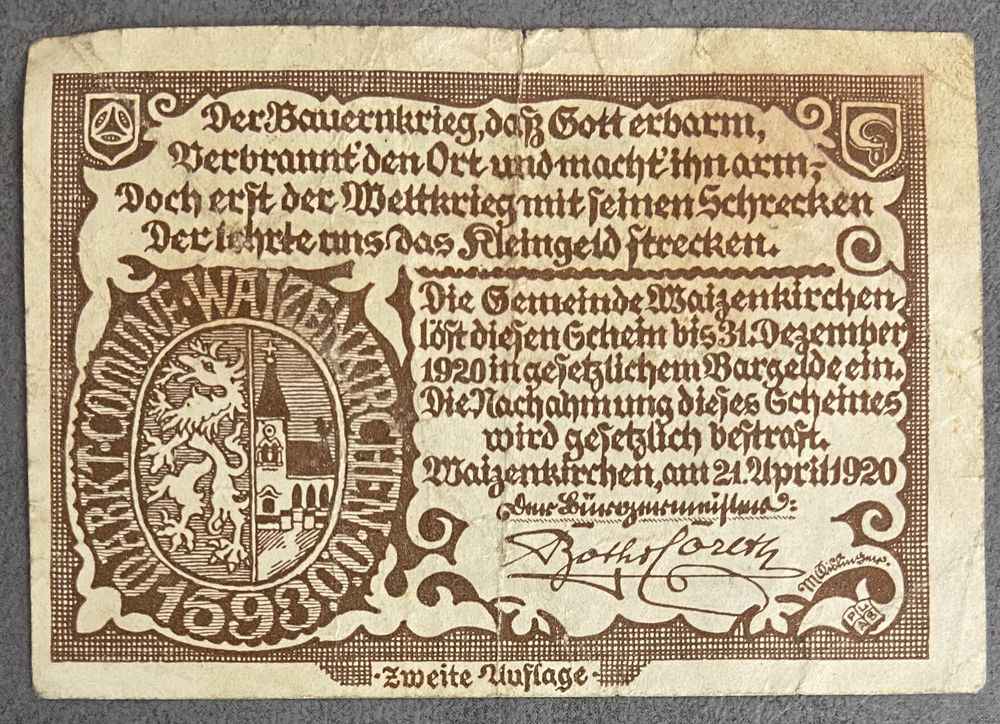 Der Bauernkrieg, daß Gott erbarm,
Verbrannt' den Ort und macht' ihn arm;
Doch erst der Weltkrieg mit seinen Schrecken
Der lehrte uns das Kleingeld strecken.
MARKT COMMUNE WAIZENKIRCHEN O.Ö.
1593
Die Gemeinde Waizenkirchen
löst diesen Schein bis 31. Dezember
1920 in gesetzlichem Bargelde ein.
Die Nachahmung dieses Scheines
wird gesetzlich bestraft.
Waizenkirchen, am 21. April 1920
Der Bürgermeister:
Zweite Auflage